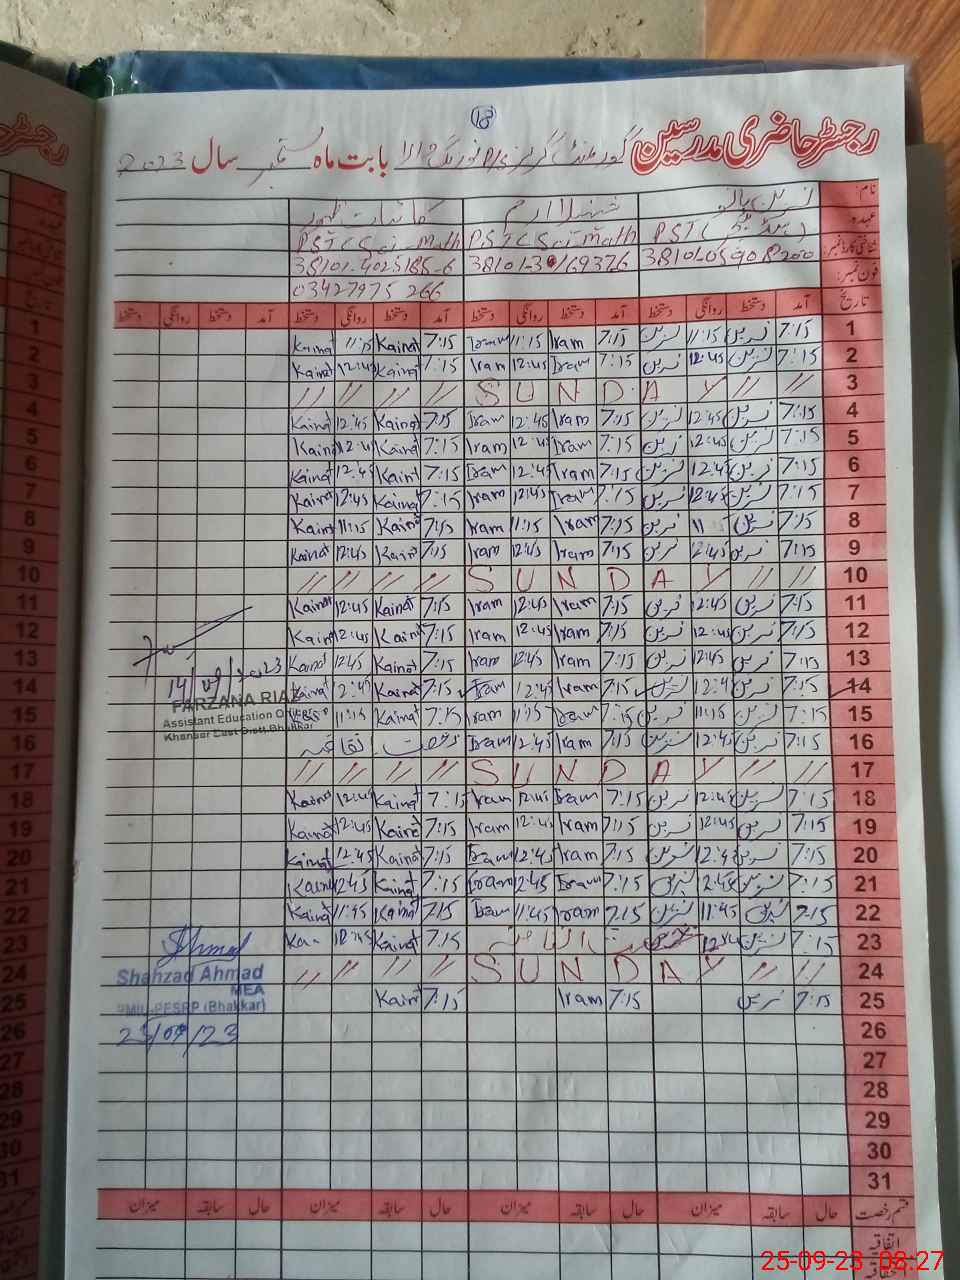 18
رجسٹر حاضری مدرسین گورنمنٹ گرلز P/S نورنگ والا بابت ماہ ستمبر سال 2023
نام: نسرین بانو شہنیلا ارم کائنات ظہور
عہدہ PST PSTC Sci-Math PSTC Sci-Math
شناختی کارڈ نمبر: 38101-0590820-0 38101-3 169376 38101-4025185-6
فون نمبر: 03427975266
تاریخ آمد دستخط روانگی دستخط آمد دستخط روانگی دستخط آمد دستخط روانگی دستخط آمد دستخط روانگی دستخط
1 7:15 نسرین 11:15 نسرین 7:15 Iram 11:15 Iram 7:15 Kainat 11:15 Kainat
2 7:15 نسرین 12:45 نسرین 7:15 Iram 12:45 Iram 7:15 Kainat 12:45 Kainat
3 // // SUNDAY // // // //
4 7:15 نسرین 12:45 نسرین 7:15 Iram 12:45 Iram 7:15 Kainat 12:45 Kainat
5 7:15 نسرین 12:45 نسرین 7:15 Iram 12:45 Iram 7:15 Kainat 12:45 Kainat
6 7:15 نسرین 12:45 نسرین 7:15 Iram 12:45 Iram 7:15 Kainat 12:45 Kainat
7 7:15 نسرین 12:45 نسرین 7:15 Iram 12:45 Iram 7:15 Kainat 12:45 Kainat
8 7:15 نسرین 11 نسرین 7:15 Iram 11:15 Iram 7:15 Kainat 11:15 Kainat
9 7:15 نسرین 12:45 نسرین 7:15 Iram 12:45 Iram 7:15 Kainat 12:45 Kainat
10 // // SUNDAY // // // //
11 7:15 نسرین 12:45 نسرین 7:15 Iram 12:45 Iram 7:15 Kainat 12:45 Kainat
12 7:15 نسرین 12:45 نسرین 7:15 Iram 12:45 Iram 7:15 Kainat 12:45 Kainat
13 7:15 نسرین 12:45 نسرین 7:15 Iram 12:45 Iram 7:15 Kainat 12:45 Kainat
14 7:15 نسرین 12:45 نسرین 7:15 Iram 12:45 Iram 7:15 Kainat 12:45 Kainat
14/09/2023
FARZANA RIAZ
Assistant Education Officer
Khansar East Distt Bhakkar
15 7:15 نسرین 11:15 نسرین 7:15 Iram 11:15 Iram 7:15 Kainat 11:15
16 7:15 نسرین 12:45 نسرین 7:15 Iram 12:45 Iram رخصت اتفاقیہ
17 // // SUNDAY // // // //
18 7:15 نسرین 12:45 نسرین 7:15 Iram 12:45 Iram 7:15 Kainat 12:45 Kainat
19 7:15 نسرین 12:45 نسرین 7:15 Iram 12:45 Iram 7:15 Kainat 12:45 Kainat
20 7:15 نسرین 12:45 نسرین 7:15 Iram 12:45 Iram 7:15 Kainat 12:45 Kainat
21 7:15 نسرین 12:45 نسرین 7:15 Iram 12:45 Iram 7:15 Kainat 12:45 Kainat
22 7:15 نسرین 11:45 نسرین 7:15 Iram 11:45 Iram 7:15 Kainat 11:45 Kainat
23 7:15 نسرین 12:45 رخصت اتفاقیہ 7:15 Kainat 12:45
24 // // SUNDAY // // // //
25 7:15 نسرین 7:15 Iram 7:15 Kainat
Shahzad Ahmad
MEA
PMIU-PESRP (Bhakkar)
25/09/23
26
27
28
29
30
31
قسم رخصت حال سابقہ میزان حال سابقہ میزان حال سابقہ میزان حال سابقہ میزان
اتفاقیہ
25-09-23 08:27